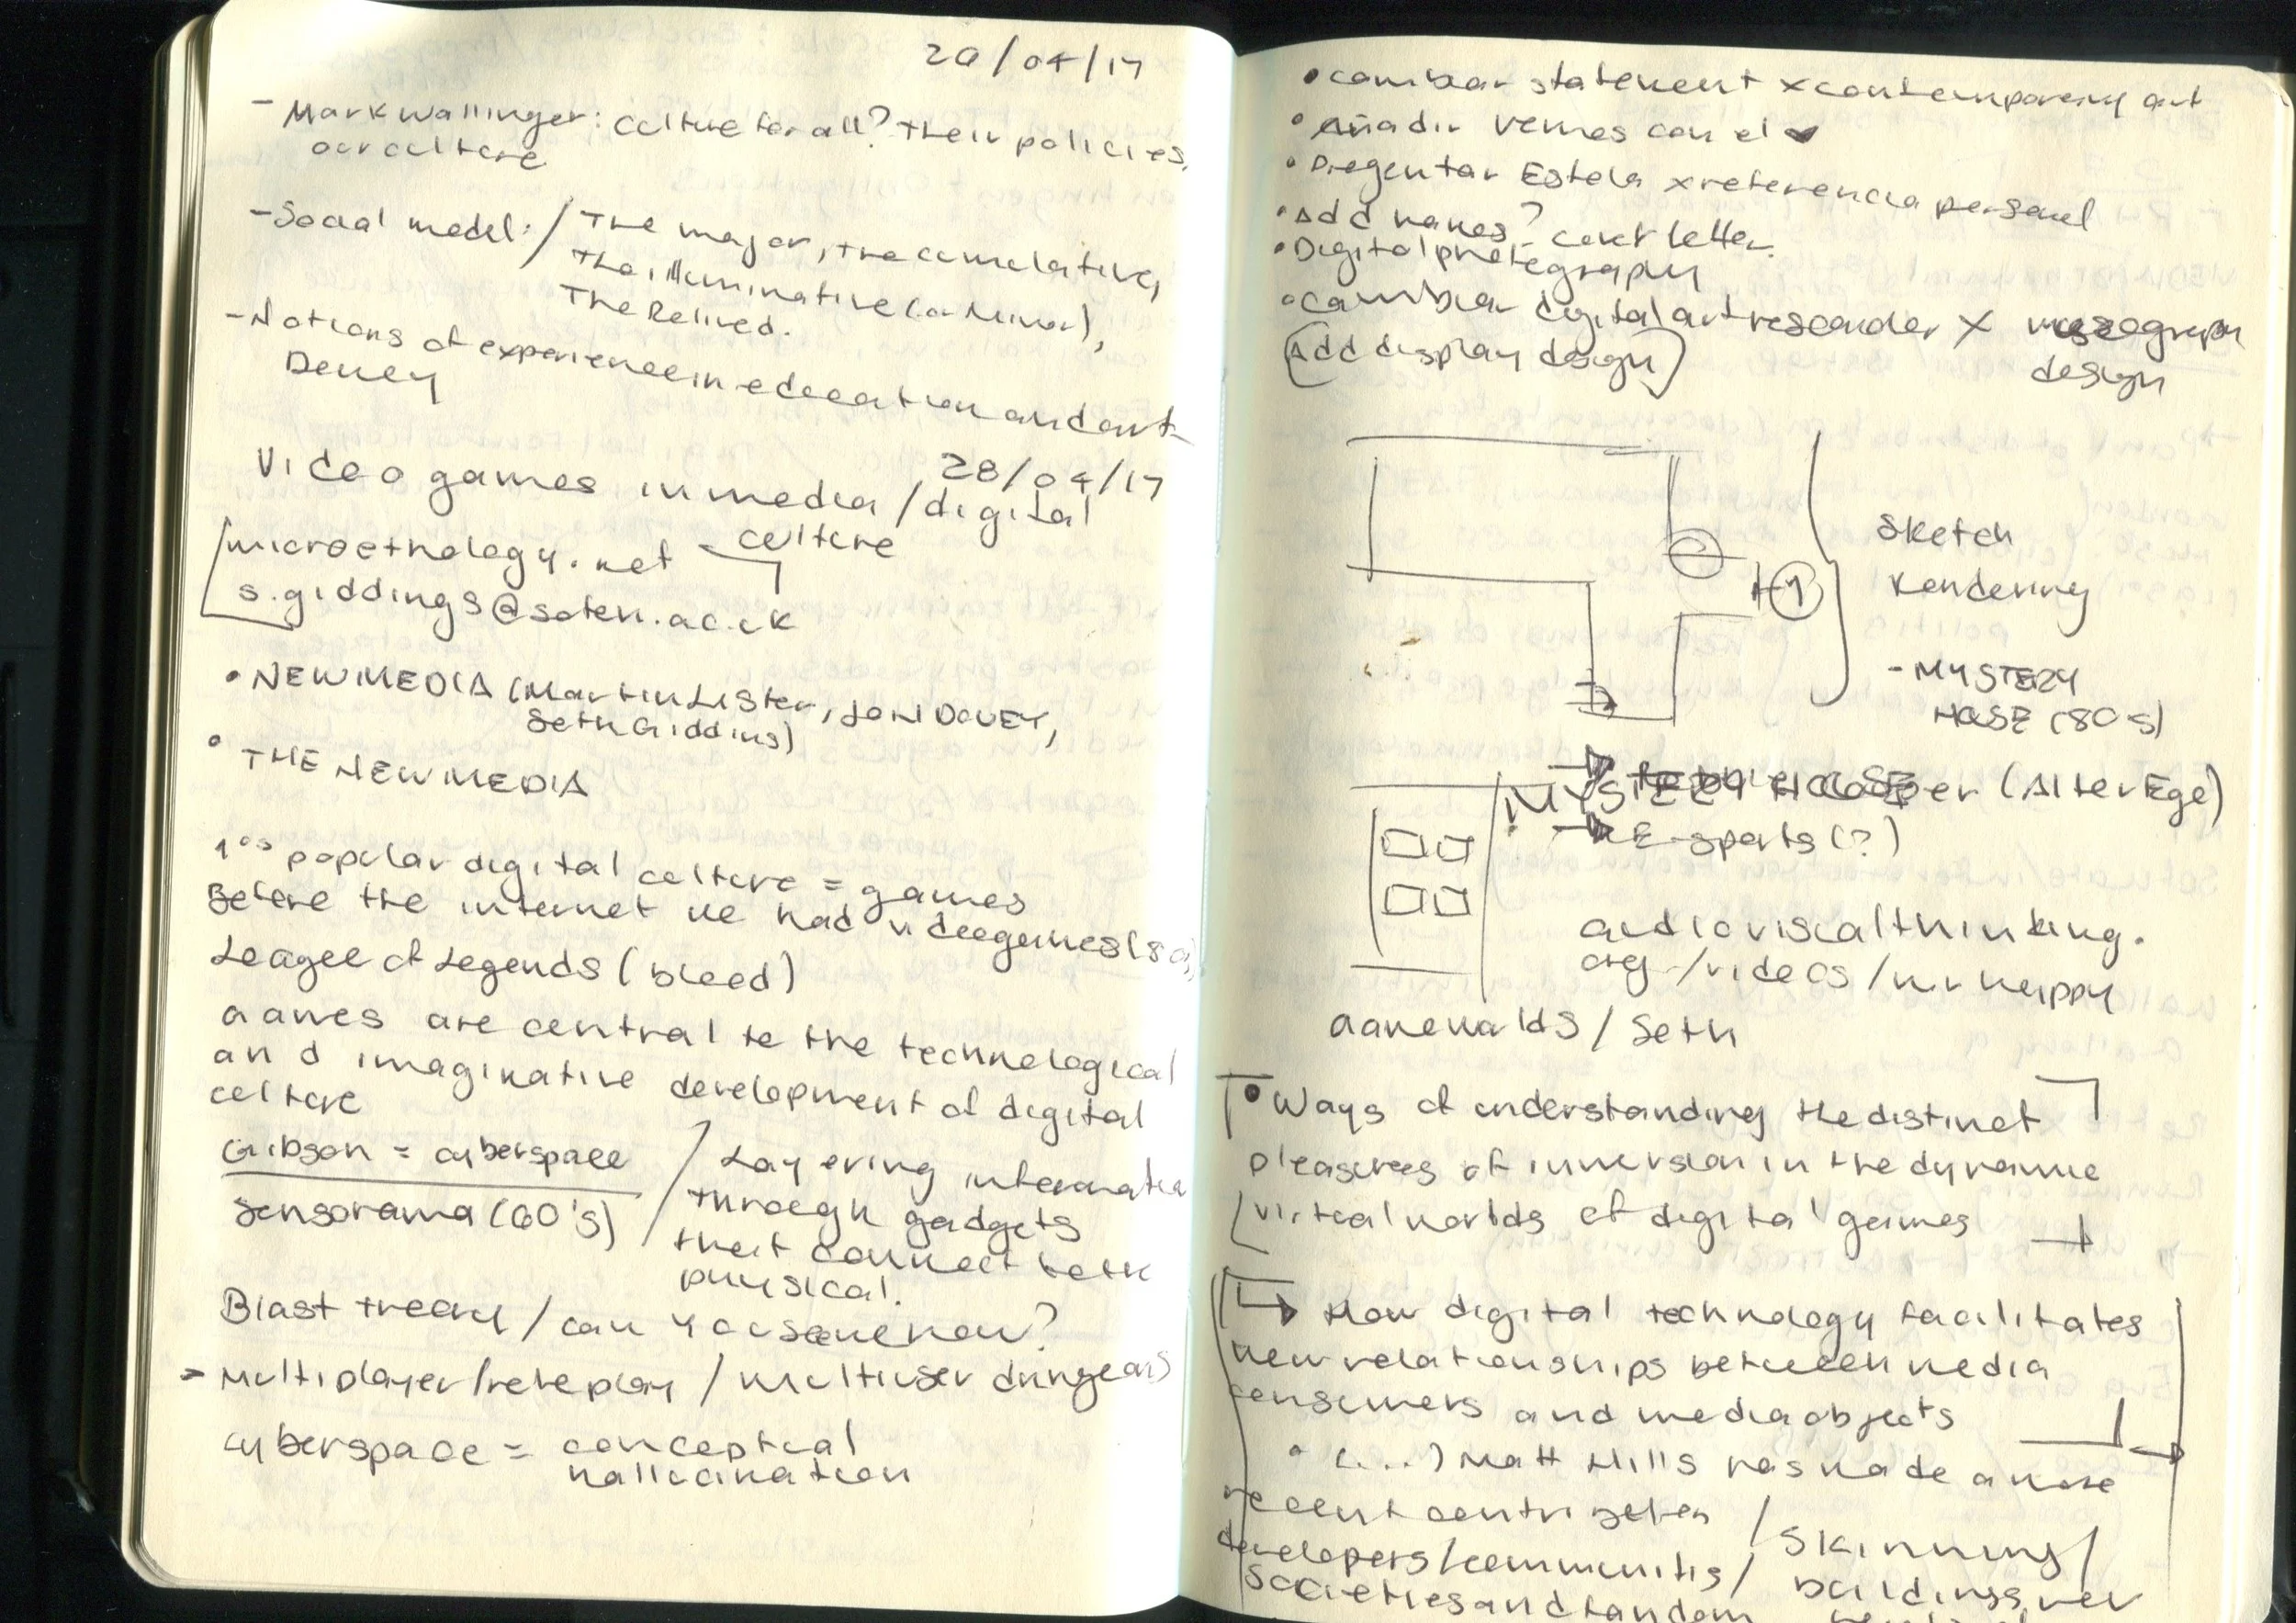 20/04/17
- Mark Wallinger: Culture for all? Their policies,
our culture
- Social model: / The major, the cumulative,
The illuminative (or Minor),
The Relived.
- Notions of experience in education and art
Dewey
28/04/17
Video games in media / digital
culture
microethology.net
s.giddings@soton.ac.uk
• NEW MEDIA (Martin Lister, JON DOVEY,
Seth Giddins)
• THE NEW MEDIA
1os popular digital culture = games
Before the internet we had videogames (80s)
League of Legends (bleed)
Games are central to the technological
and imaginative development of digital
culture
Gibson = cyberspace
Sensorama (60's)
/ Layering information
through gadgets
that connect both
physical.
Blast theory / can you see me now?
- Multiplayer / role play / multiuser dungeons
cyberspace = conceptual
hallucination
• cambiar statement x contemporary art
• Añadir vemos con el
• Preguntar Estela x referencia personal
• Add names? cover letter.
• Digital photography
• cambiar digital art researcher x museography
design
(Add display design)
Sketch
rendering
- MYSTERY
HOUSE (80s)
MYSTERY HOUSE
(Alter Ego)
→ E-sports (?)
audiovisualthinking.
org / videos / mr happy
Gameworlds / Seth
• Ways of understanding the distinct
pleasures of immersion in the dynamic
virtual worlds of digital games
→ How digital technology facilitates
new relationships between media
consumers and media objects
• (...) Matt Hills has made a more
recent contribution
developers / communities /
societies and fandom
/ skinning /
buildings, ver